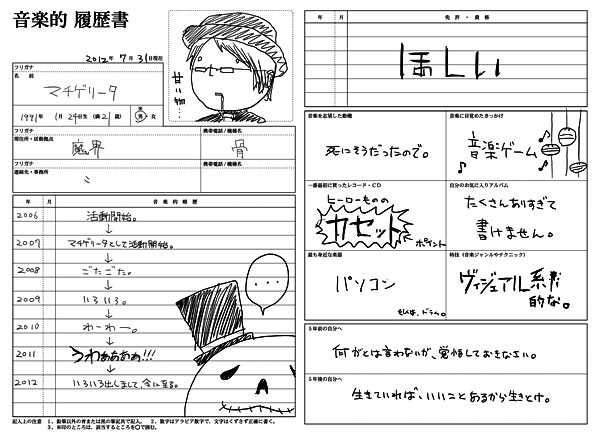 音楽的 履歴書
2012年 7月 31日現在
フリガナ
名 前
マチゲリータ
1991年 1月 24日生 (満 21 歳)
※
男・女
フリガナ
現住所・活動拠点
携帯電話/機種名
魔界
骨
フリガナ
連絡先・事務所
携帯電話/機種名
年 月 音楽的履歴
2006 活動開始。
↓
2007 マチゲリータとして活動開始。
↓
2008 ごたごた。
↓
2009 いろいろ。
↓
2010 わーわー。
↓
2011 うわああああ!!!
↓
2012 いろいろ出しまして、今に至る。
...
記入上の注意 1、鉛筆以外の青または黒の筆記具で記入。 2、数字はアラビア数字で、文字はくずさず正確に書く。
3、※印のところは、該当するところを○で囲む。
年 月 免許・資格
ほしい
音楽を志望した動機
死にそうだったので。
音楽に目覚めたきっかけ
音楽ゲーム
一番最初に買ったレコード・CD
ヒーローものの
カセット
ポイント
自分のお気に入りアルバム
たくさんありすぎて
書けません。
最も身近な楽器
パソコン
もしくは、ドラム。
特技(音楽ジャンルやテクニック)
ヴィジュアル系
的な。
5年前の自分へ
何がとは言わないが、覚悟しておきなさい。
5年後の自分へ
生きていれば、いいことあるから生きとけ。